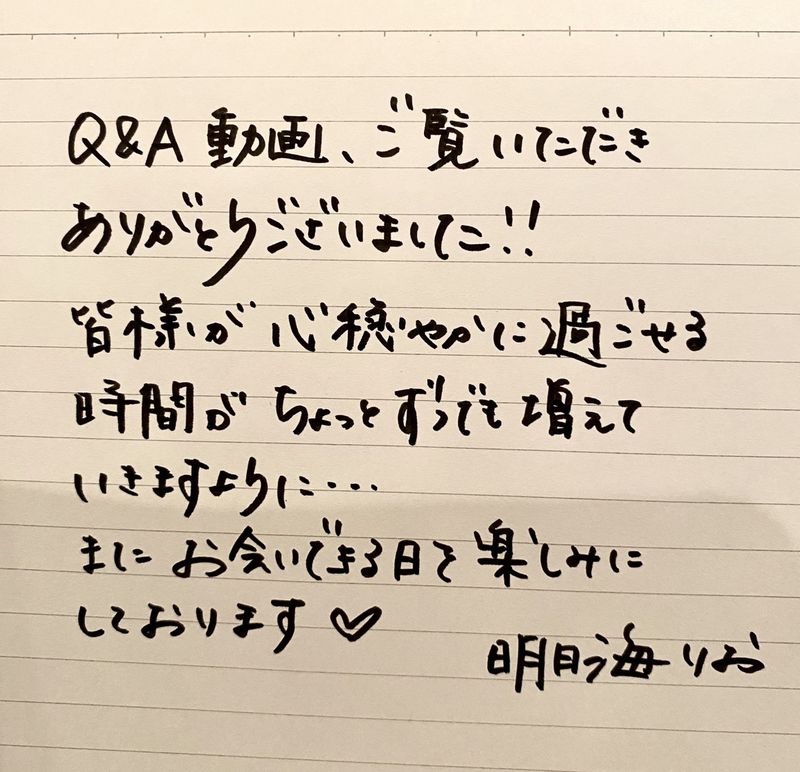 Q&A 動画、ご覧いただき
ありがとうございました!!
皆様が心穏やかに過ごせる
時間がちょっとずつでも増えて
いきますように…
またお会いできる日を楽しみに
しております♡
明日海りお